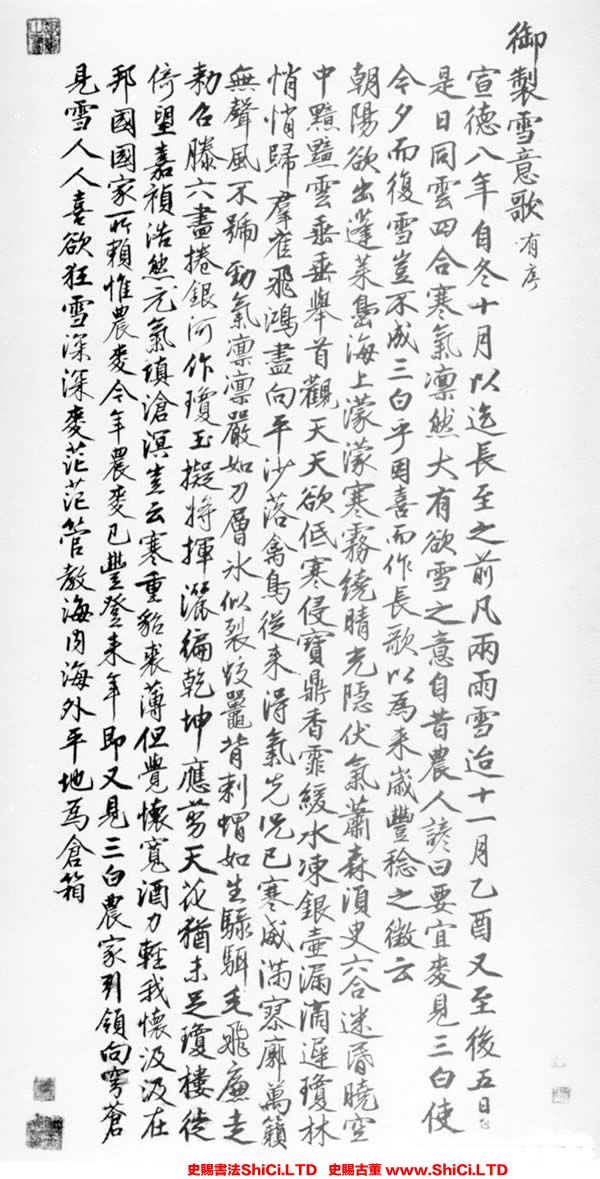 御製雪意歌 有序
宣德八年自冬十月以迄長至之前凡兩雨雪迨十一月乙酉又至後五日也
是日同雲四合寒氣凛然大有欲雪之意自昔農人諺曰要宜麥見三白使
今夕而復雪豈不成三白乎因喜而作長歌以為来嵗豐稔之徵云
朝陽欲出蓬莱島海上濛濛寒霧繞晴光隠伏氣蕭森須臾六合迷昏曉空
中黯黯雲垂垂舉首觀天天欲低寒侵寶鼎香霏緩水凍銀壺漏滴遲瓊林
悄悄歸羣雀飛鴻盡向平沙落禽鳥從来得氣先况已寒威滿寥廓萬籟
無聲風不號勁氣凛凛嚴如刀層氷似裂蛟鼉背刺蝟如生騄駬毛飛廉走
勅召滕六盡捲銀河作瓊玉擬將揮灑徧乾坤應剪天花猶未足瓊樓徙
倚望嘉禎浩然元氣填滄溟豈云寒重貂裘薄但覺懷寬酒力輕我懷汲汲在
邦國國家所賴惟農麥今年農麥已豐登来年即又見三白農家引領向穹蒼
見雪人人喜欲狂雪深深麥茫茫管教海内海外平地為倉箱
史賜書法ShiCi.LTD 史賜古董 www.ShiCi.LTD